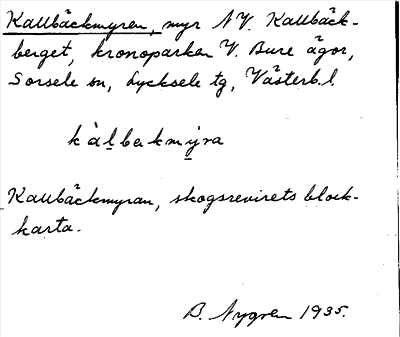 Kallbäckmyren, myr NV. Kallbäck-
berget, kronoparken V. Bure ägor,
Sorsele sn, Lycksele tg, Västerb.l.
kàl̲bekmý̲ra
Kallbäckmyran, skogsrevirets block-
karta.
B. Nygren 1935.